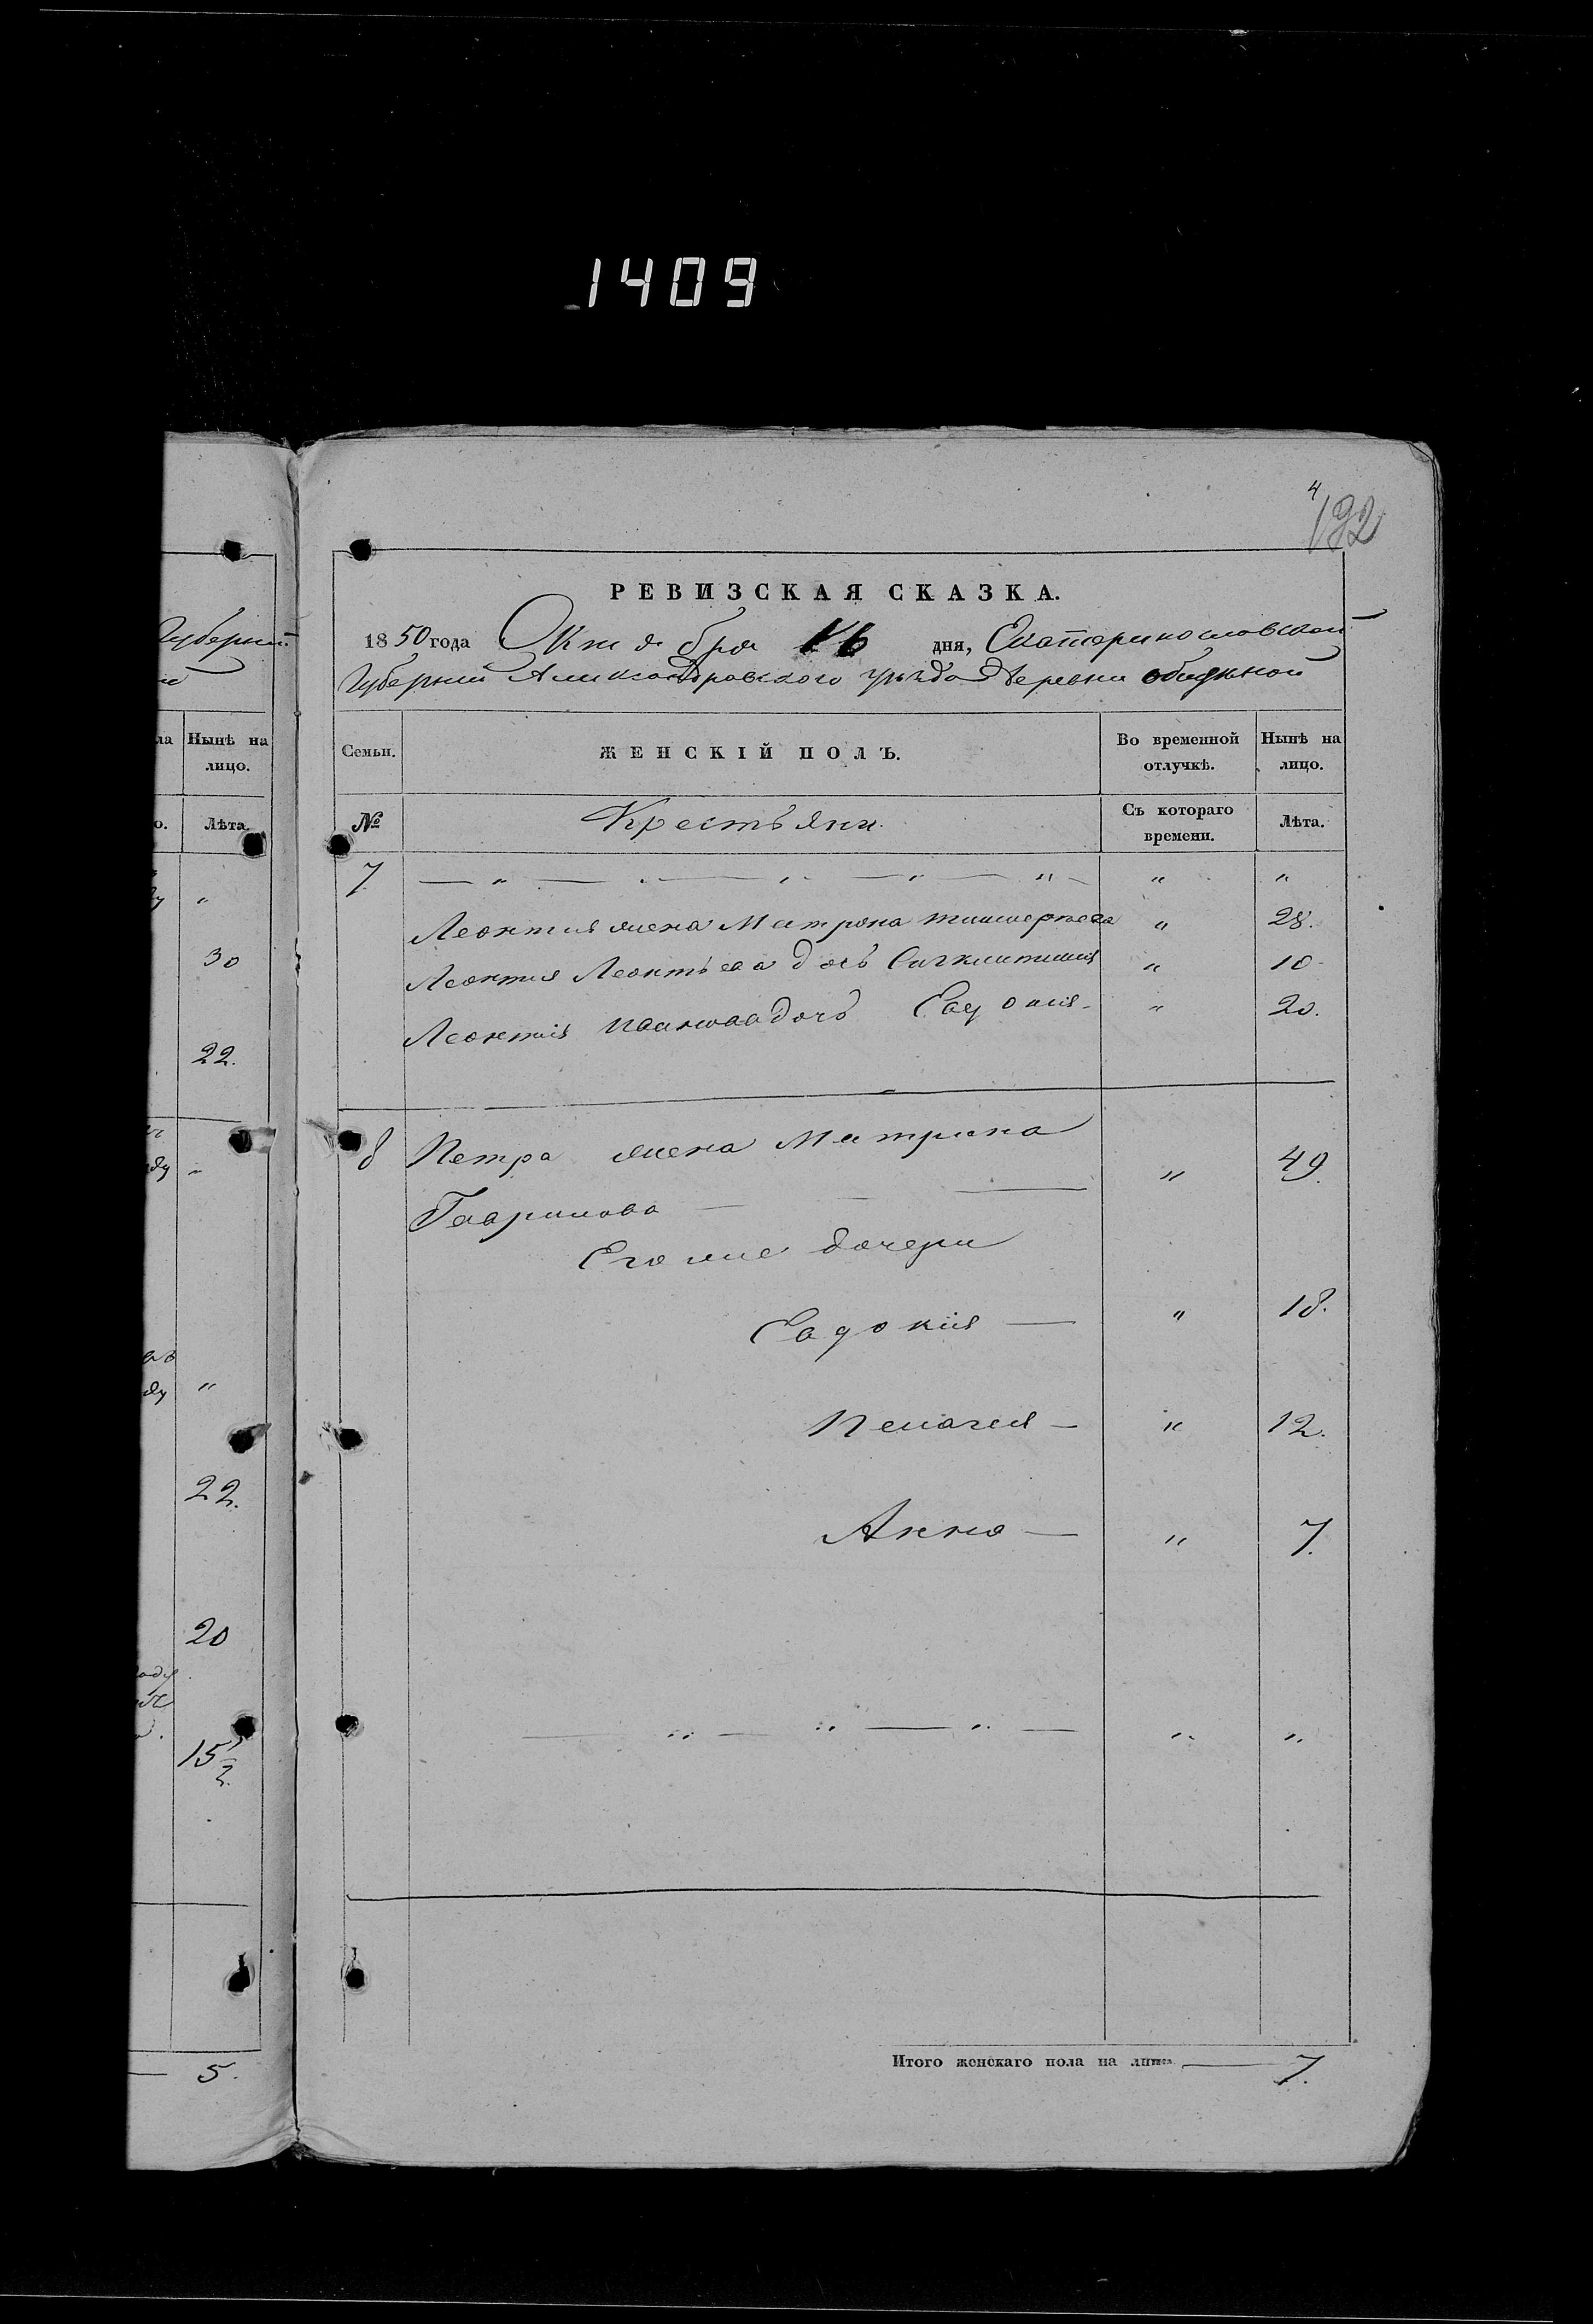 1409
4
192
РЕВИЗСКАЯ СКАЗКА.
1850 года Октября 16 дня, Екатеринославской
Губернии Александровского уѣзда деревни обидной
Семьи.
ЖЕНСКІЙ ПОЛЪ.
Во временной отлучкѣ.
Нынѣ на лицо.
№
Крестьяни.
Съ котораго времени.
Лѣта.
7 — „ — „ — „ — „ — „ — „ „
Леонтия жена Матрона „ 28.
Леонтия Леонтьева дочь „ 10.
Леонтия дочь Евдокия „ 20.
8 Петра жена Матрина „ 49.
Гаврилова —
Его же дочери
Евдокия — „ 18.
Пелагея — „ 12.
Анна — „ 7.
— „ — „ — „ — „ „
Итого женскаго пола на лицо — 7.
Губернии
Нынѣ на
лицо.
Лѣта.
„
30
22.
„
„
22.
20
15 1/2
— 5.